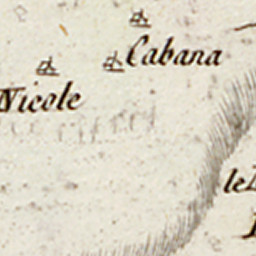 Cabana
Nicole
le